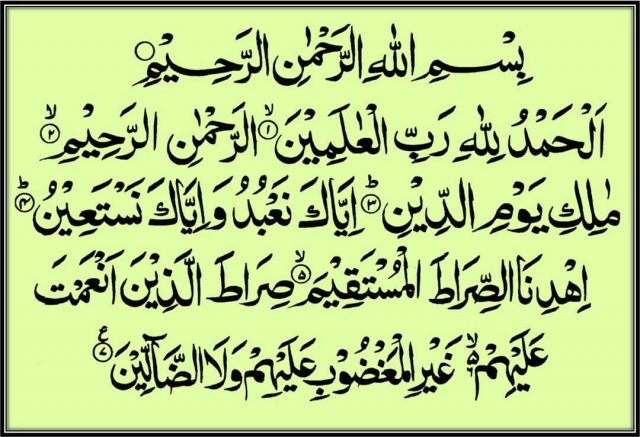 بِسْمِ اللهِ الرَّحْمٰنِ الرَّحِيْمِ
اَلْحَمْدُ لِلّٰهِ رَبِّ الْعٰلَمِيْنَ ۙ﴿۱﴾ الرَّحْمٰنِ الرَّحِيْمِ ۙ﴿۲﴾
مٰلِكِ يَوْمِ الدِّيْنِ ؕ﴿۳﴾ اِيَّاكَ نَعْبُدُ وَاِيَّاكَ نَسْتَعِيْنُ ؕ﴿۴﴾
اِهْدِنَا الصِّرَاطَ الْمُسْتَقِيْمَ ۙ﴿۵﴾ صِرَاطَ الَّذِيْنَ اَنْعَمْتَ
عَلَيْهِمْ ۙ۬ غَيْرِ الْمَغْضُوْبِ عَلَيْهِمْ وَلَا الضَّآلِّيْنَ ﴿۷﴾ۧ